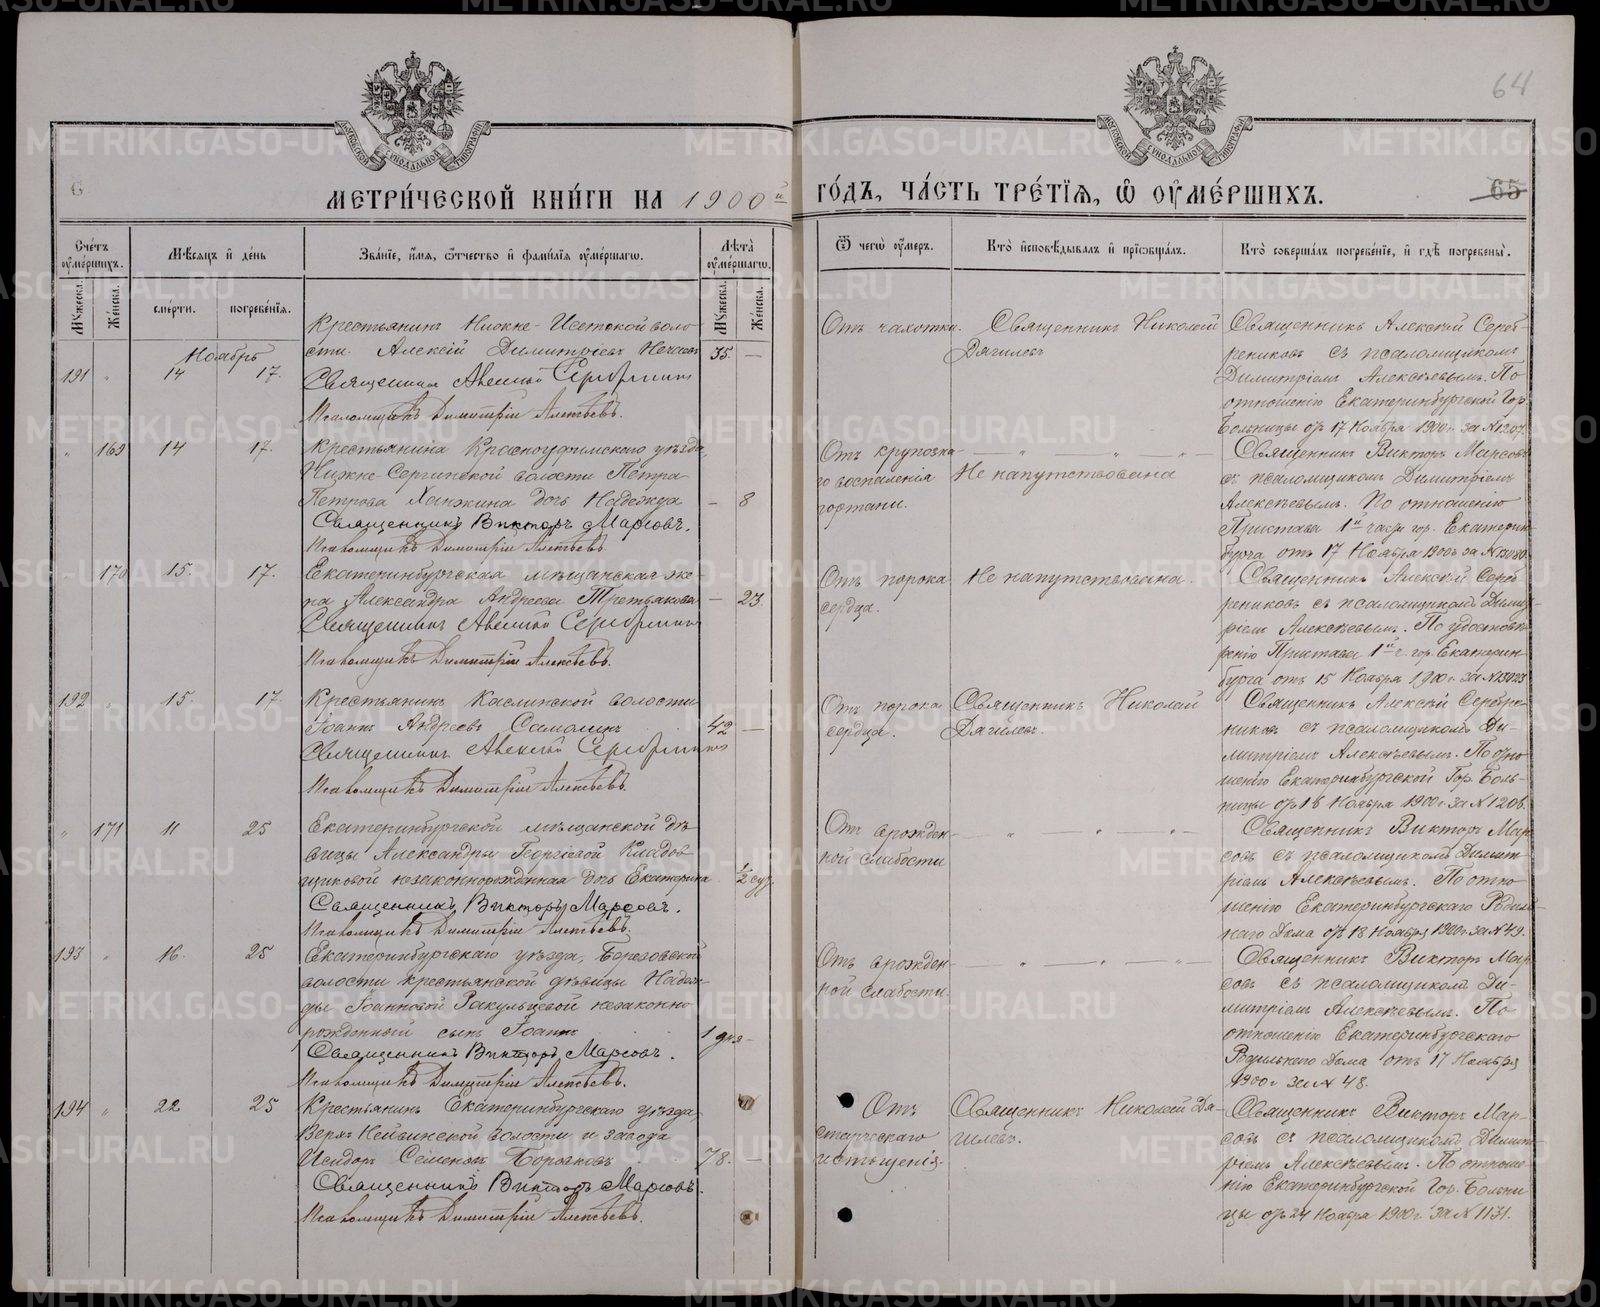 64
МЕТРИ́ЧЕСКОЙ КНИ́ГИ НА 1900й ГО́ДЪ, ЧА́СТЬ ТРЕ́ТІѦ, Ѡ ОУМЕ́РШИХЪ.
65
Сче́тъ оуме́ршихъ.
Мѣ́сѧцъ и де́нь
Зва́ніе, и́мѧ, ѻ́тчество и фами́лїѧ оуме́ршагѡ.
Лѣ́та оуме́ршагѡ.
Ѿ чегѡ̀ оу́меръ.
Кто̀ и҆сповѣ́дывалъ и҆ прїѡбща́лъ.
Кто̀ соверша́лъ погребе́нїе, и҆ гдѣ̀ погребены̀.
Мꙋ́жеска.
Же́нска.
сме́рти.
погребе́нїѧ.
Мꙋ́жеска.
Же́нска.
Ноябрь
191 " 14 17.
Крестьянинъ Нижне-Исетской воло-
сти Алексій Димитріевъ 35. —
Священникъ Алексѣй Серебренниковъ
Псаломщикъ Димитрій Алексѣевъ.
Отъ чахотки.
Священникъ Николай
Дягилевъ
Священникъ Алексѣй Сереб-
рениковъ съ псаломщикомъ
Димитріемъ Алексѣевымъ. По
отношенію Екатеринбургской Гор.
Больницы отъ 17 Ноября 1900 г. за № 1207.
" 169 14 17.
Крестьянина Красноуфимскаго уѣзда,
Нижне-Сергинской волости Петра
Петрова Ханжина дочь Надежда — 8
Священникъ Викторъ Марсовъ.
Псаломщикъ Димитрій Алексѣевъ.
Отъ крупозна-
го воспаленія
гортани.
Не напутствована
Священникъ Викторъ Марсовъ
съ псаломщикомъ Димитріемъ
Алексѣевымъ. По отношенію
Пристава 1й части гор. Екатерин-
бурга отъ 17 Ноября 1900 за №
170 15. 17.
Екатеринбургская мѣщанская же-
на Александра Андреева Третьякова — 23.
Священникъ Алексѣй Серебренниковъ
Псаломщикъ Димитрій Алексѣевъ.
Отъ порока
сердца.
Не напутствована.
Священникъ Алексѣй Сереб-
рениковъ съ псаломщикомъ Димит-
ріемъ Алексѣевымъ. По удостовѣ-
ренію Пристава 1й ч. гор. Екатерин-
бурга отъ 15 Ноября 1900 г. за №
192 " 15. 17.
Крестьянинъ Каслинской волости
Іоаннъ Андреевъ 42 —
Священникъ Алексѣй Серебренниковъ
Псаломщикъ Димитрій Алексѣевъ.
Отъ порока
сердца.
Священникъ Николай
Дягилевъ.
Священникъ Алексѣй Серебре-
никовъ съ псаломщикомъ Ди-
митріемъ Алексѣевымъ. По отно-
шенію Екатеринбургской Гор. Боль-
ницы отъ 16 Ноября 1900 г. за № 1206.
" 171 11 25
Екатеринбургской мѣщанской дѣ-
вицы Александры Георгіевой Кладов-
щиковой незаконнорожденная дочь Екатерина ½ сут.
Священникъ Викторъ Марсовъ.
Псаломщикъ Димитрій Алексѣевъ.
Отъ врожден-
ной слабости
Священникъ Викторъ Мар-
совъ съ псаломщикомъ Димит-
ріемъ Алексѣевымъ. По отно-
шенію Екатеринбургскаго Родиль-
наго Дома отъ 18 Ноября 1900 г. за № 49.
193 " 16. 25
Екатеринбургскаго уѣзда, Березовской
волости крестьянской дѣвицы Надеж-
ды Іоанновой Ракульцевой незаконно-
рожденный сынъ Іоаннъ 1 дня —
Священникъ Викторъ Марсовъ.
Псаломщикъ Димитрій Алексѣевъ.
Отъ врожден-
ной слабости.
Священникъ Викторъ Мар-
совъ съ псаломщикомъ Ди-
митріемъ Алексѣевымъ. По
отношенію Екатеринбургскаго
Родильнаго Дома отъ 17 Ноября
1900 г. за № 48.
194 " 22 25
Крестьянинъ Екатеринбургскаго уѣзда,
Верхъ-Нейвинской волости и завода
Исидоръ Семеновъ 78. —
Священникъ Викторъ Марсовъ.
Псаломщикъ Димитрій Алексѣевъ.
Отъ
старческаго
истощенія.
Священникъ Николай Дя-
гилевъ.
Священникъ Викторъ Мар-
совъ съ псаломщикомъ Димит-
ріемъ Алексѣевымъ. По отноше-
нію Екатеринбургской Гор. Больни-
цы отъ 24 Ноября 1900 г. за № 1131.
METRIKI.GASO-URAL.RU